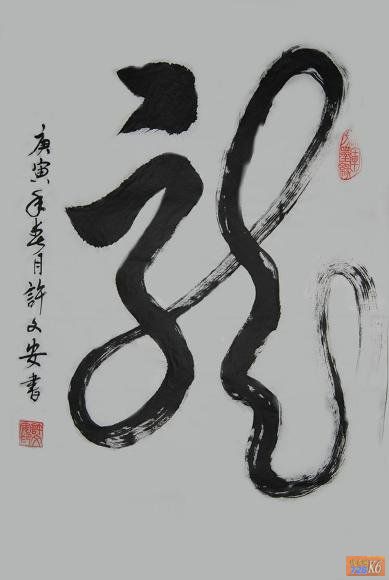 龍
庚寅年春月許文安書
K6